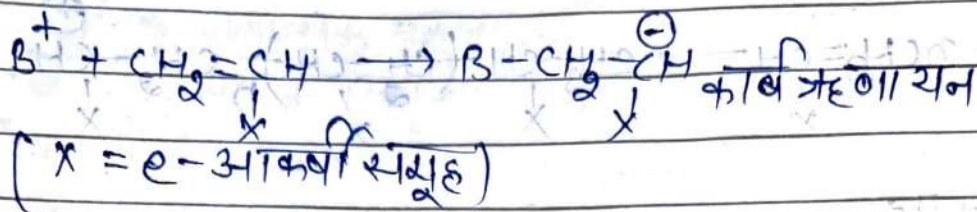 B⁺ + CH₂=CH ⟶ B-CH₂-CH⊖ कार्ब ऋणायन
↓ X ↓ X
( X = e-आकर्षी समूह)